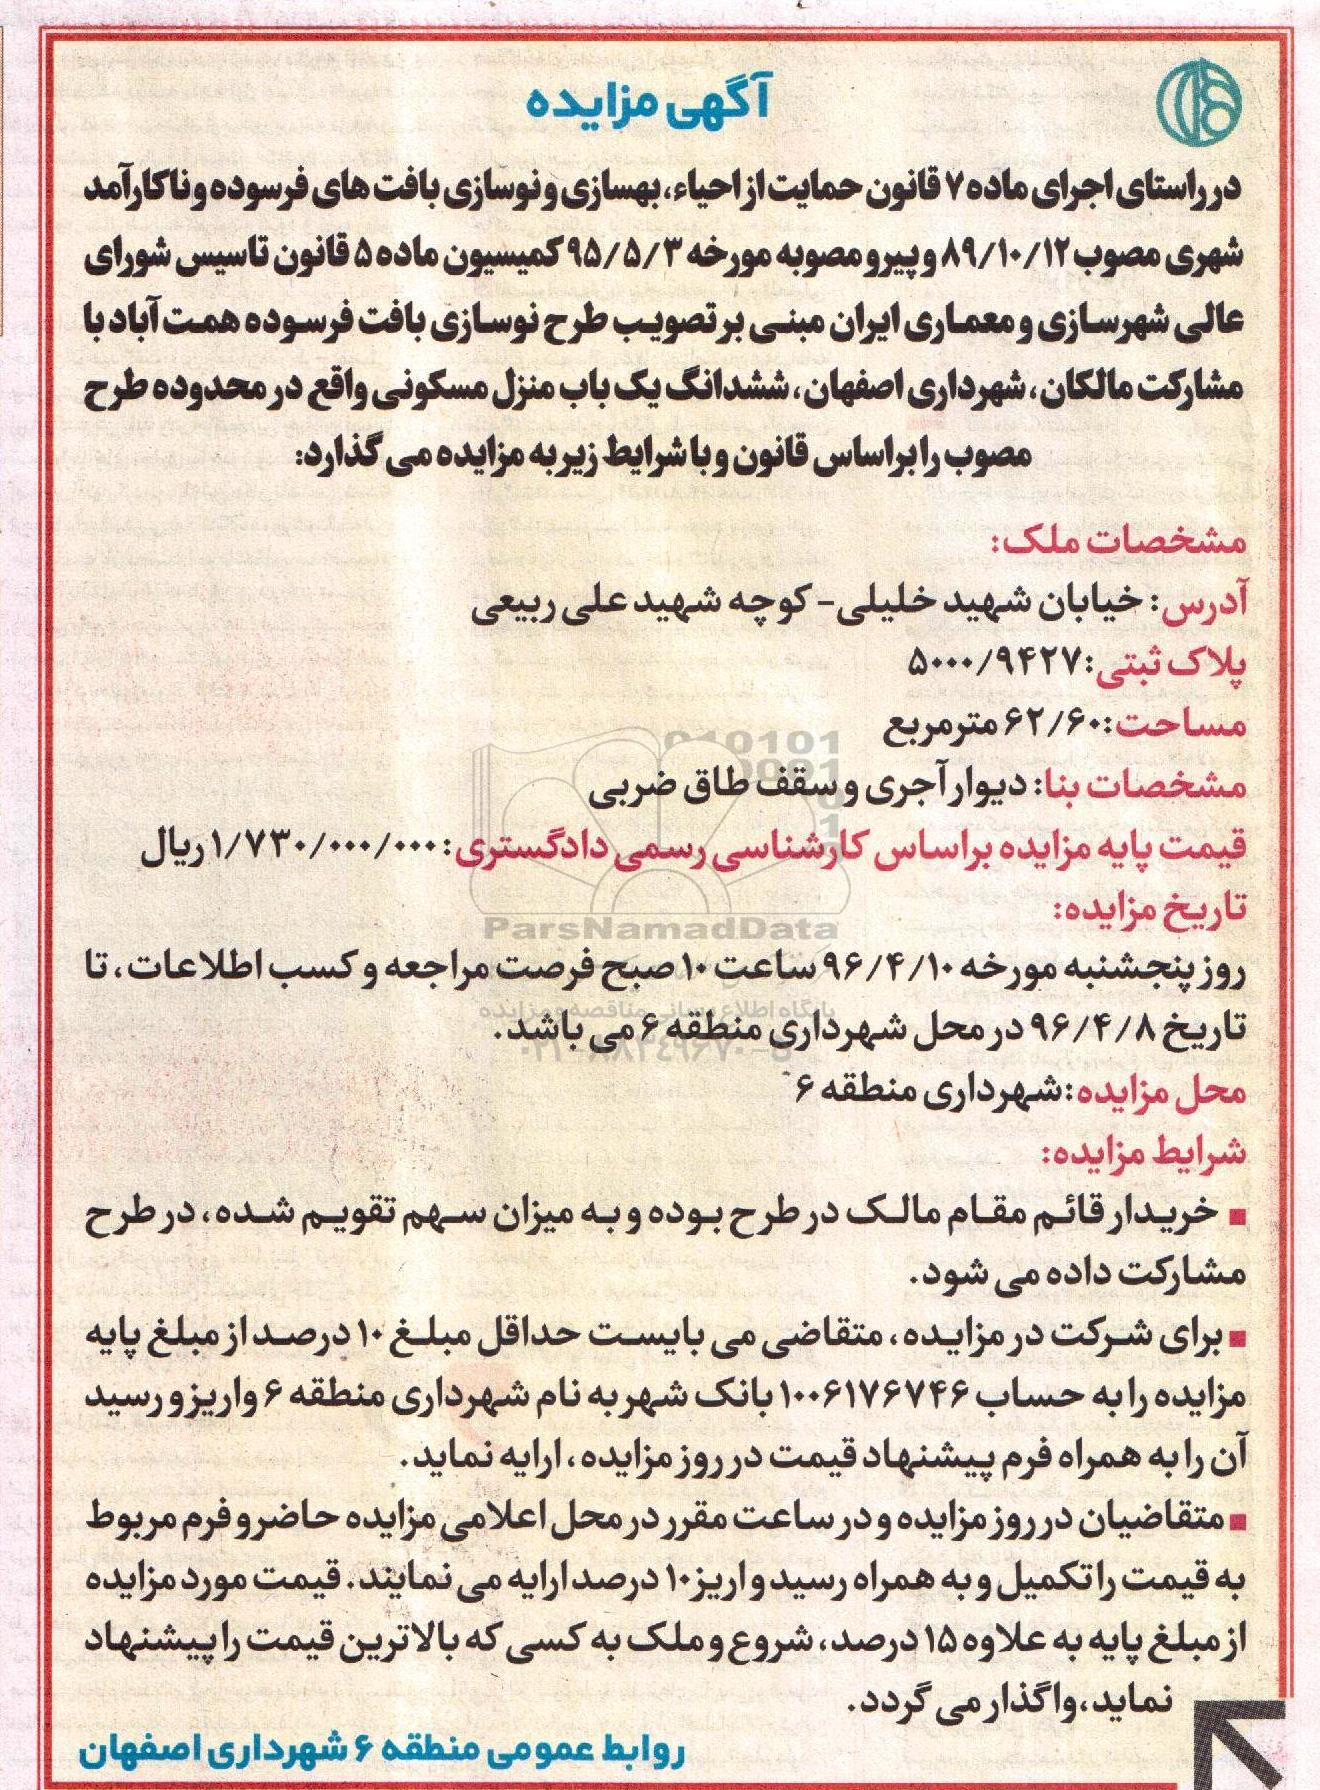 آگهی مزایده
در راستای اجرای ماده ۷ قانون حمایت از احیاء، بهسازی و نوسازی بافت های فرسوده و ناکارآمد
شهری مصوب ۸۹/۱۰/۱۲ و پیرو مصوبه مورخه ۹۵/۵/۳ کمیسیون ماده ۵ قانون تاسیس شورای
عالی شهرسازی و معماری ایران مبنی بر تصویب طرح نوسازی بافت فرسوده همت آباد با
مشارکت مالکان، شهرداری اصفهان، ششدانگ یک باب منزل مسکونی واقع در محدوده طرح
مصوب را براساس قانون و با شرایط زیر به مزایده می گذارد:
مشخصات ملک:
آدرس: خیابان شهید خلیلی- کوچه شهید علی ربیعی
پلاک ثبتی: ۵۰۰۰/۹۴۲۷
مساحت: ۶۲/۶۰ مترمربع
مشخصات بنا: دیوار آجری و سقف طاق ضربی
قیمت پایه مزایده براساس کارشناسی رسمی دادگستری: ۱/۷۳۰/۰۰۰/۰۰۰ ریال
تاریخ مزایده:
ParsNamadData
روز پنجشنبه مورخه ۹۶/۴/۱۰ ساعت ۱۰ صبح فرصت مراجعه و کسب اطلاعات، تا
پایگاه اطلاع رسانی مناقصه و مزایده
تاریخ ۹۶/۴/۸ در محل شهرداری منطقه ۶ می باشد.
۰۲۱-۸۸۳۴۹۶۷۰-۵
محل مزایده: شهرداری منطقه ۶
شرایط مزایده:
■ خریدار قائم مقام مالک در طرح بوده و به میزان سهم تقویم شده، در طرح
مشارکت داده می شود.
■ برای شرکت در مزایده، متقاضی می بایست حداقل مبلغ ۱۰ درصد از مبلغ پایه
مزایده را به حساب ۱۰۰۶۱۷۶۷۴۶ بانک شهر به نام شهرداری منطقه ۶ واریز و رسید
آن را به همراه فرم پیشنهاد قیمت در روز مزایده، ارایه نماید.
■ متقاضیان در روز مزایده و در ساعت مقرر در محل اعلامی مزایده حاضر و فرم مربوط
به قیمت را تکمیل و به همراه رسید واریز ۱۰ درصد ارایه می نمایند. قیمت مورد مزایده
از مبلغ پایه به علاوه ۱۵ درصد، شروع و ملک به کسی که بالاترین قیمت را پیشنهاد
نماید، واگذار می گردد.
روابط عمومی منطقه ۶ شهرداری اصفهان